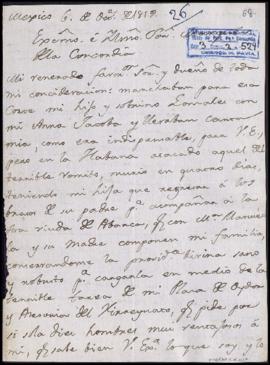 Mexico 6. de Dic. de 1818.
26
68
3 2 524
Excmo. é Illmo. Sor.
de la Concordia
Mi venerado favor.r Sor. y dueño de toda
mi consideracion: marchaban para esa
Corte mi hijo y sobrino Zorrales con
mi Anna Jacoba y llevaban carta
mia, como era indispensable, para V.E.,
pero en la Habana atacado aquel del
terrible vomito, murió en quatro dias,
teniendo mi hija que regresar á los
brazos de su padre pª acompañar á la
viuda de Abarca, q.e con Mª Manuela
y su Madre componen mi familia,
conservandome la provid.a Divina sano
y robusto pª cargarla en medio de la
terrible tarea de mi Plaza de Oydor
y Asesoria del Virreynato, q.e pide por
si sola diez hombres muy ventajosos á
mi, q.e sabe bien V. Exª lo que soy y lo